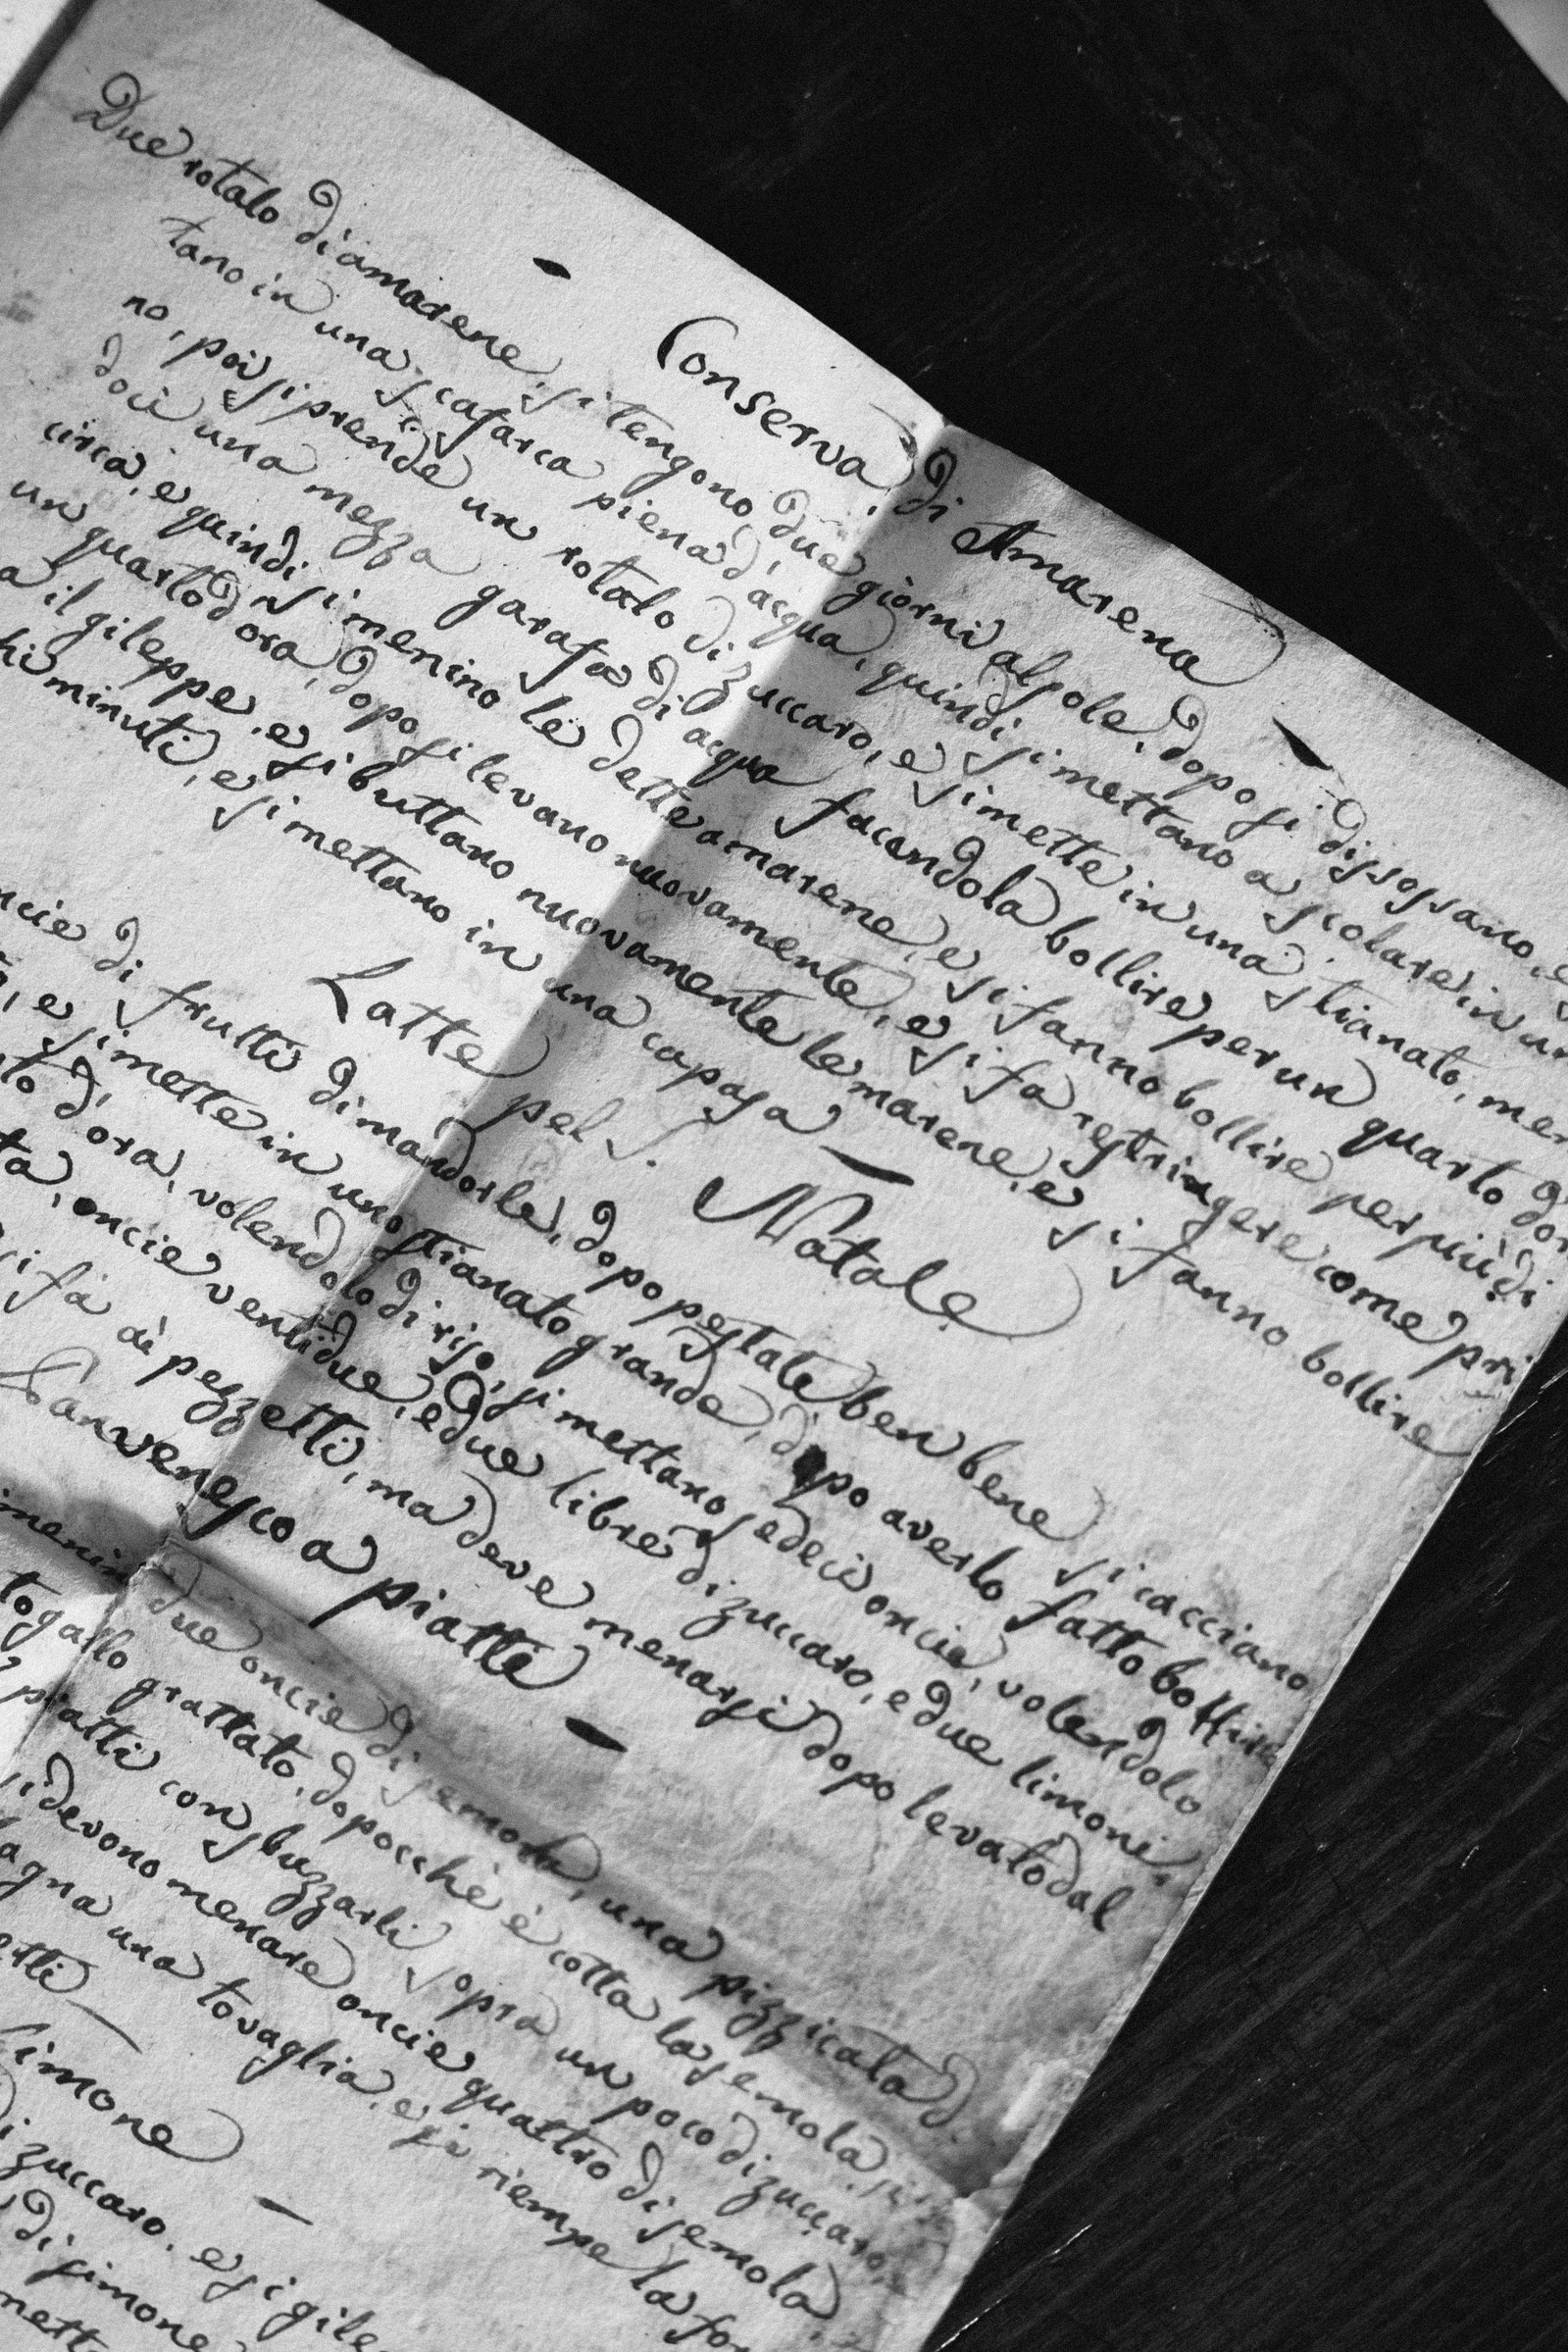 Conserva di Amarena
Due rotalo di amarene, si tengono due giorni al sole, dopo si dissossano, e
tano in una scafarea piena d'acqua, quindi si mettano a scolare in un
no, poi si prende un rotalo di zuccaro, e si mette in una stianato, men
doci una mezza garafa di acqua facendola bollire per un quarto d'or
circa, e quindi si menino le dette amarene, e si fanno bollire per più di
un quarto d'ora, dopo si levano nuovamente, e si fa restringere come pri
a il gileppe, e si buttano nuovamente le marene, e si fanno bollire
hi minuti, e si mettano in una capasa
Latte pel S. Natale
ncie di frutti di mandorla, dopo pestate ben bene si cacciano
to, e si mette in uno stianato grande, dopo averlo fatto bollire
to d'ora, volendolo di riso, si mettano sedeci oncie, volendolo
ta, oncie ventidue, e due libre di zuccaro, e due limoni,
si fa a' pezzetti, ma deve menarsi dopo levato dal
Sanvenesco a piatte
due oncie di semola, una pizzicata
togallo grattato, dopocchè è cotta la semola, si
piatti con sbuzzarli sopra un poco di zuccaro,
si devono menare oncie quattro di semola,
agna una tovaglia, e si riempe la for
erli
Limone
di zuccaro, e si gile
di simone
mett